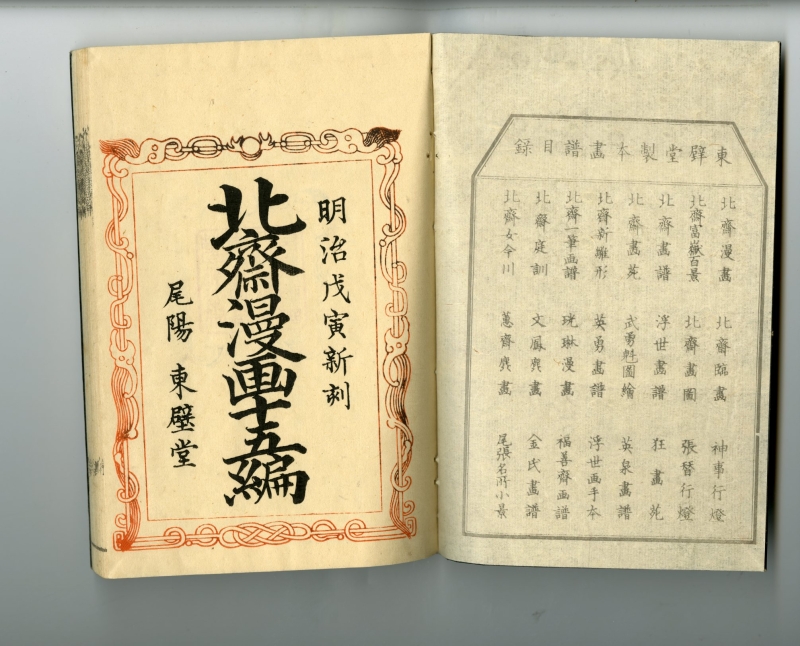 東壁堂製本畫譜目録
北齋漫畫 北齋臨畫 神事行燈
北齋富嶽百景 北齋畫圖 張替行燈
北齋畫譜 浮世畫譜 狂畫苑
北齋畫苑 武勇魁圖繪 英泉畫譜
北齋新雛形 英勇畫譜 浮世画手本
北齋一筆画譜 珖琳漫畫 福善齋画譜
北齋庭訓 文鳳麁畫 金氏畫譜
北齋女今川 蕙齋麁畫 尾張名所小景
明治戊寅新刻
北齋漫画十五編
尾陽 東壁堂